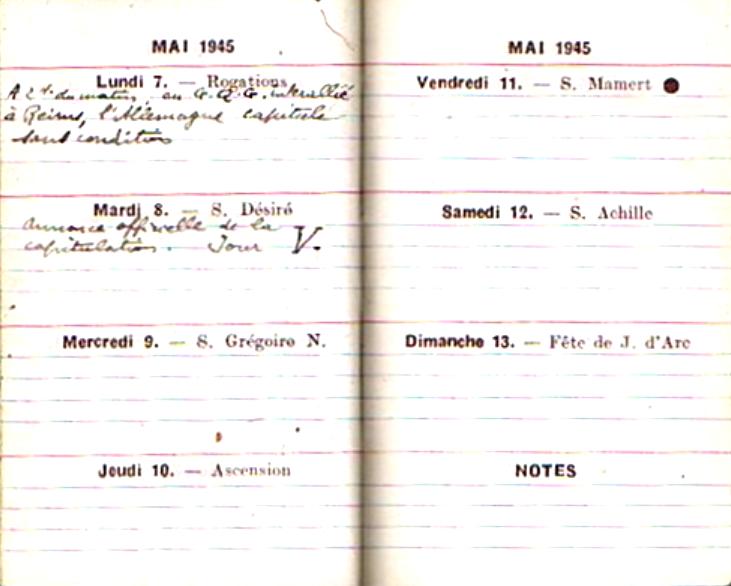 MAI 1945
Lundi 7. — Rogations
A 2 h. du matin, au G.Q.G. interallié
à Reims, l'Allemagne capitule
sans condition
Mardi 8. — S. Désiré
Annonce officielle de la
capitulation. Jour V.
Mercredi 9. — S. Grégoire N.
Jeudi 10. — Ascension
MAI 1945
Vendredi 11. — S. Mamert
Samedi 12. — S. Achille
Dimanche 13. — Fête de J. d'Arc
NOTES